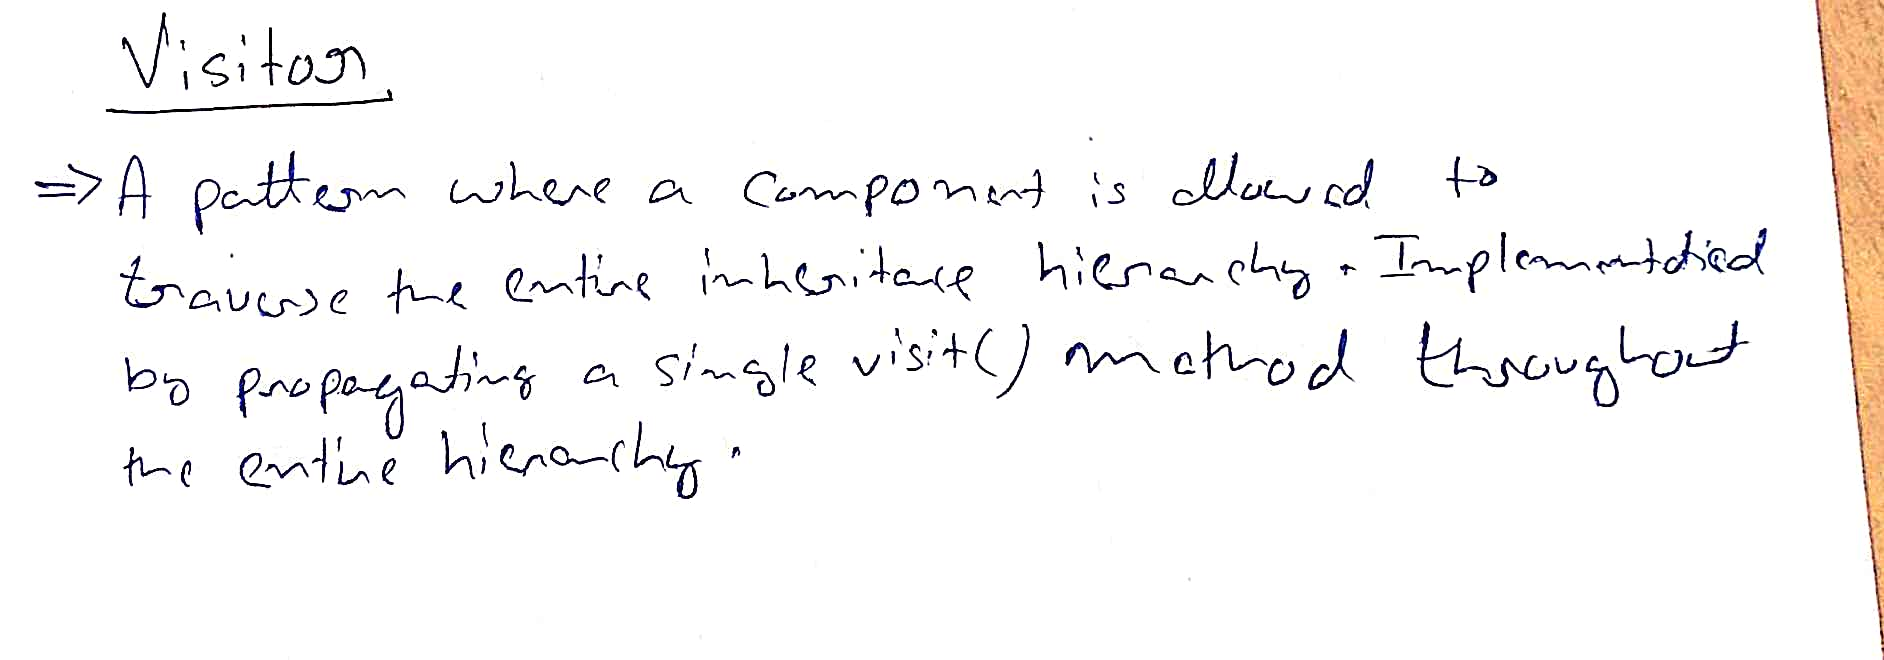 Visitor
=> A pattern where a component is allowed to
traverse the entire inheritace hierarchy. Implementatied
by propagating a single visit() method throughout
the entire hierarchy.